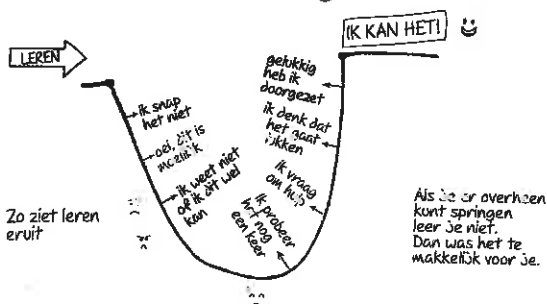 LEREN
IK KAN HET!
ik snap
het niet
oei, dit is
moeilijk
ik weet niet
of ik dit wel
kan
ik probeer
het nog
een keer
ik vraag
om hulp
ik denk dat
het gaat
lukken
gelukkig
heb ik
doorgezet
Zo ziet leren
eruit
Als je er overheen
kunt springen
leer je niet.
Dan was het te
makkelijk voor je.